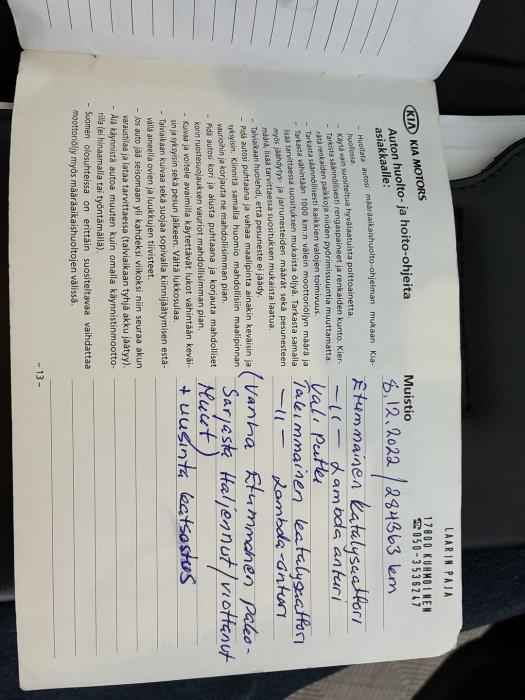 KIA KIA MOTORS
Auton huolto- ja hoito-ohjeita
asiakkaalle:
- Huollata autosi määräaikaishuolto-ohjelman mukaan Kia-
huolossa.
- Käytä vain suositeltua hyvälaatuista polttoainetta.
- Tarkista säännöllisesti rengaspaineet ja renkaiden kunto. Kier-
rätä renkaiden paikkoja niiden pyörimissuuntia muuttamatta.
- Tarkasta säännöllisesti kaikkien valojen toimivuus.
- Tarkasta vähintään 1000 km:n välein moottoriöljyn määrä ja
lisää tarvittaessa suosituksen mukaista öljyä. Tarkasta samalla
myös jäähdytys- ja jarrunesteiden määrät sekä pesunesteen
määrä, lisää tarvittaessa suosituksen mukaista laatua.
- Talviaikaan huolehdi, että pesuneste ei jäädy.
- Pidä autosi puhtaana ja vahaa maalipinta ainakin keväisin ja
syksyisin. Kiinnitä samalla huomio mahdollisiin maalipinnan
vaurioihin ja korjauta ne mahdollisimman pian.
- Pidä autosi kori ja alusta puhtaana ja korjauta mahdolliset
korin ruostesuojauksen vauriot mahdollisimman pian.
- Kuivaa ja voitele avaimilla käytettävät lukot vähintään keväi-
sin ja syksyisin sekä pesun jälkeen. Vältä lukkosulaa.
- Talviaikaan kuivaa sekä suojaa sopivalla kiinnijäätymisen estä-
vällä aineella ovien ja luukkujen tiivisteet.
- Jos auto jää seisomaan yli kahdeksi viikoksi niin seuraa akun
varaustilaa ja lataa tarvittaessa (talviaikaan tyhjä akku jäätyy).
- Älä käynnistä autoa muuten kuin omalla käynnistinmootto-
rilla (ei hinaamalla tai työntämällä).
- Suomen olosuhteissa on erittäin suositeltavaa vaihdattaa
moottoriöljy myös määräaikaishuoltojen välissä.
LAARIN PAJA
17800 KUHMOINEN
☎050-3536247
Muistio
8.12.2022 / 284363 km
Etummainen katalysaattori
-11- Lambda anturi
Väli Putki
Takimmainen katalysaattori
-11- Lambda-anturi
(Vanha Etummainen Pako-
Sarjasta Haljennut / viottanut
Muut)
+ uusinta katsastus
-13-